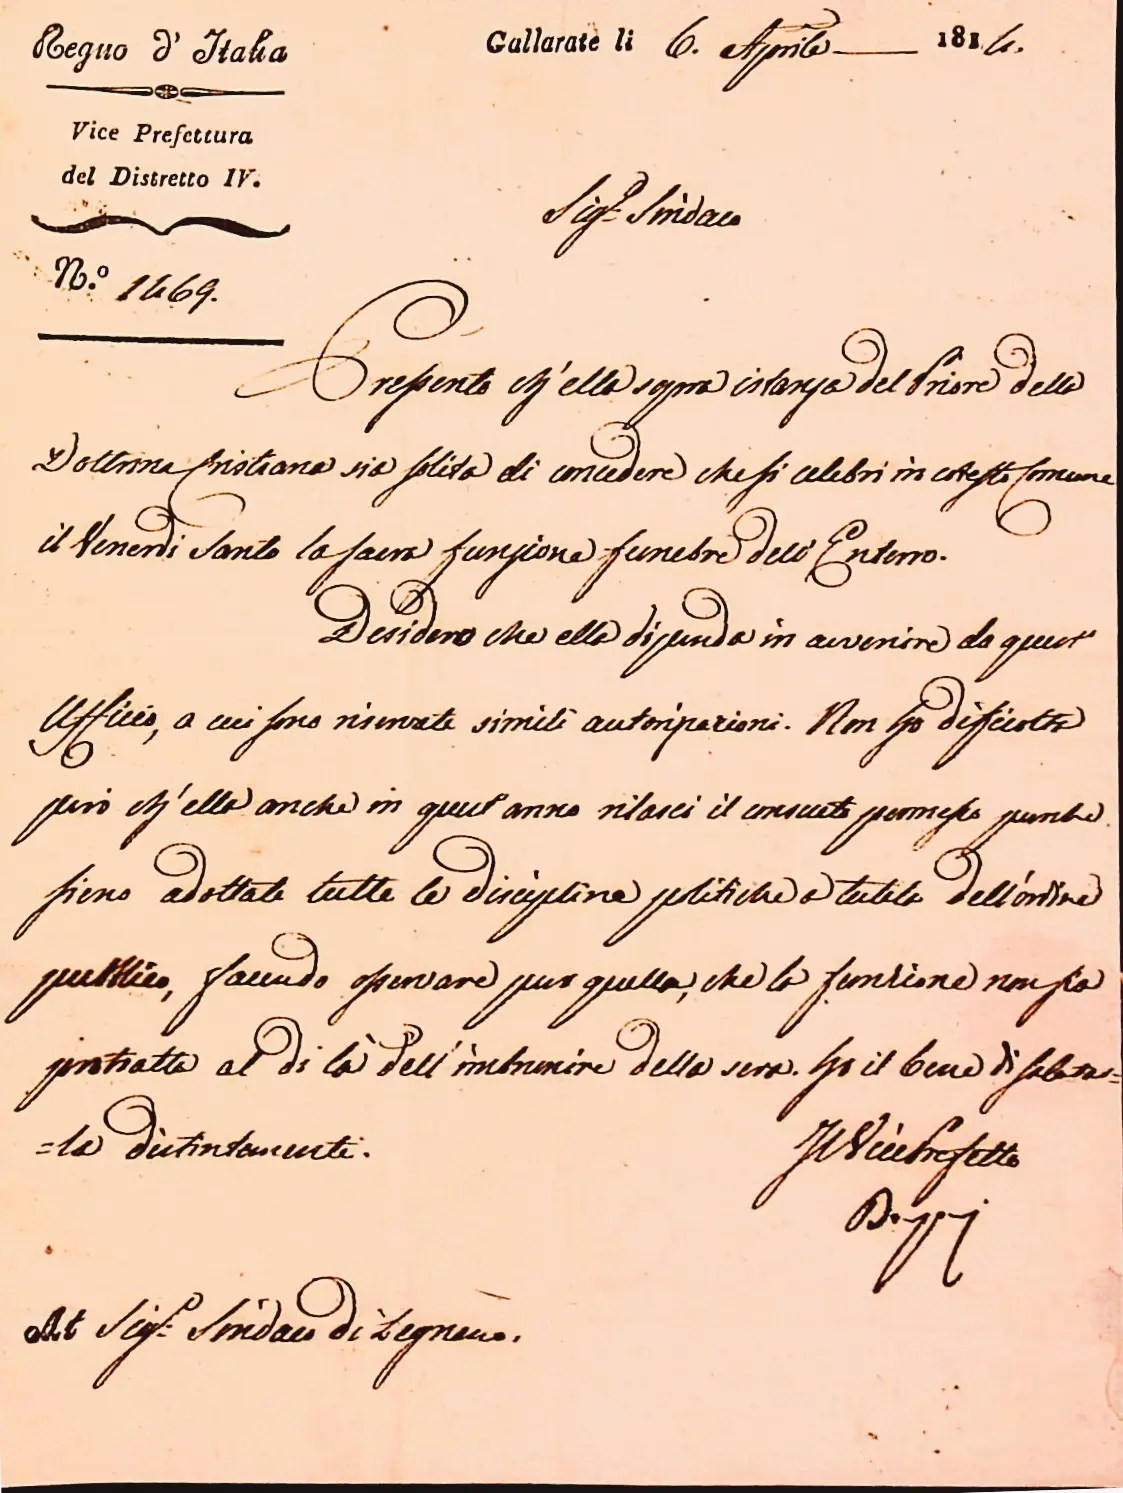 Regno d' Italia
Gallarate li 6. Aprile 1814.
Vice Prefettura
del Distretto IV.
N.° 1469.
Sig.r Sindaco
Pressento ch' ella sopra istanza del Priore della
Dottrina Cristiana sia solita di concedere che si celebri in cotesto Comune
il Venerdi Santo la sacra funzione funebre dell' Enterro.
Desidero che ella dipenda in avvenire da quest'
Ufficio, a cui sono riservate simili autorizzazioni. Non ho difficoltà
però ch' ella anche in quest' anno rilasci il consueto permesso purche
sieno adottate tutte le discipline politiche a tutela dell' ordine
pubblico, facendo osservare pur quella, che la funzione non sia
protratta al di là dell' imbrunire della sera. Ho il bene di salutar=
=la distintamente.
Il Vice Prefetto
Al Sig.r Sindaco di Legnano.